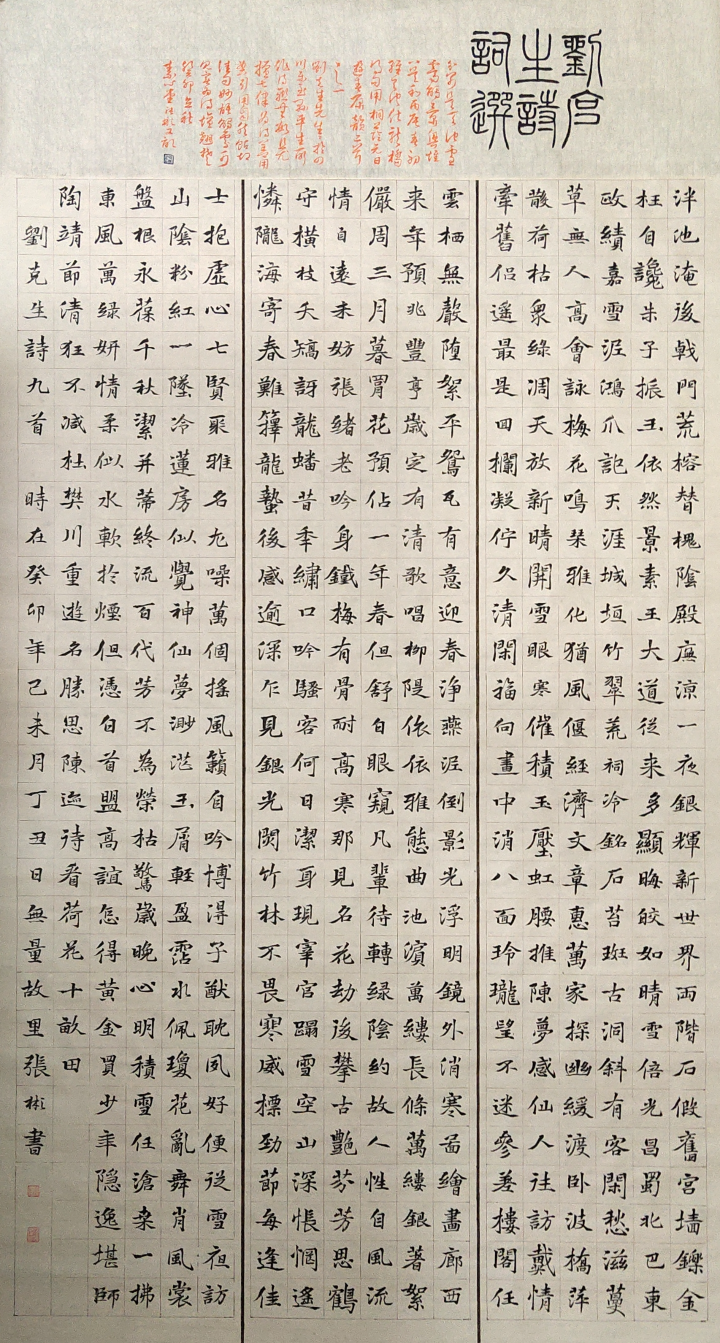 劉克
生詩
詞選
泮池淹後戟門荒榕替槐陰殿廡涼一夜銀輝新世界兩階石傲舊宮墻鑠金
枉自讒朱子振玉依然景素王大道從来多顯晦皎如晴雪倍光昌蜀北巴東
歐績嘉雪泥鴻爪記天涯城垣竹翠荒祠冷銘石苔斑古洞斜有客閑愁滋蔓
草無人高會詠梅花鳴琴雅化猶風偃經濟文章惠萬家探幽緩渡卧波橋萍
骸荷枯衆綠凋天放新晴開雪眼寒催積玉壓虹腰推陳夢感仙人往訪戴情
牽舊侶遥最是回欄凝佇久清閑福向畫中消八面玲瓏望不迷參差樓閣任
雲栖無聲堕絮平鴛瓦有意迎春浄燕泥倒影光浮明鏡外消寒圖繪畫廊西
来年預兆豐亨歲定有清歌唱柳隄依依雅態曲池濱萬縷長條萬縷銀著絮
儼周三月暮罥花預佔一年春但舒白眼窺凡輩待轉緑陰約故人性自風流
情自遠未妨張緒老吟身鐵梅有骨耐高寒那見名花劫後攀古艷芬芳思鶴
守橫枝夭矯訝龍蟠昔年繡口吟騷客何日潔身現宰官蹋雪空山深悵惘遙
憐隴海寄春難籜龍蟄後感逾深乍見銀光閃竹林不畏寒威標勁節每逢佳
士抱虛心七賢聚雅名尤噪萬個搖風籟自吟博得子猷耽夙好便從雪夜訪
山陰粉紅一墜冷蓮房似覺神仙夢渺茫玉屑輕盈霑水佩瓊花亂舞肖風裳
盤根永葆千秋潔并蒂終流百代芳不為榮枯驚歲晚心明積雪任滄桑一拂
東風萬緑妍情柔似水軟於煙但憑白首盟高誼怎得黃金買少年隐逸堪師
陶靖節清狂不減杜樊川重遊名勝思陳迹待看荷花十畝田
劉克生詩九首 時在癸卯年己未月丁丑日無量故里張彬書